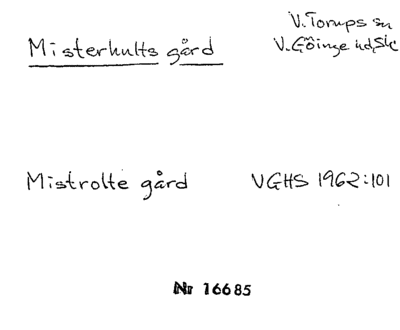 Misterhults gård
V. Torups sn
V. Göinge hd, Sk
Mistrolte gård VGHS 1962:101
Nr 16685